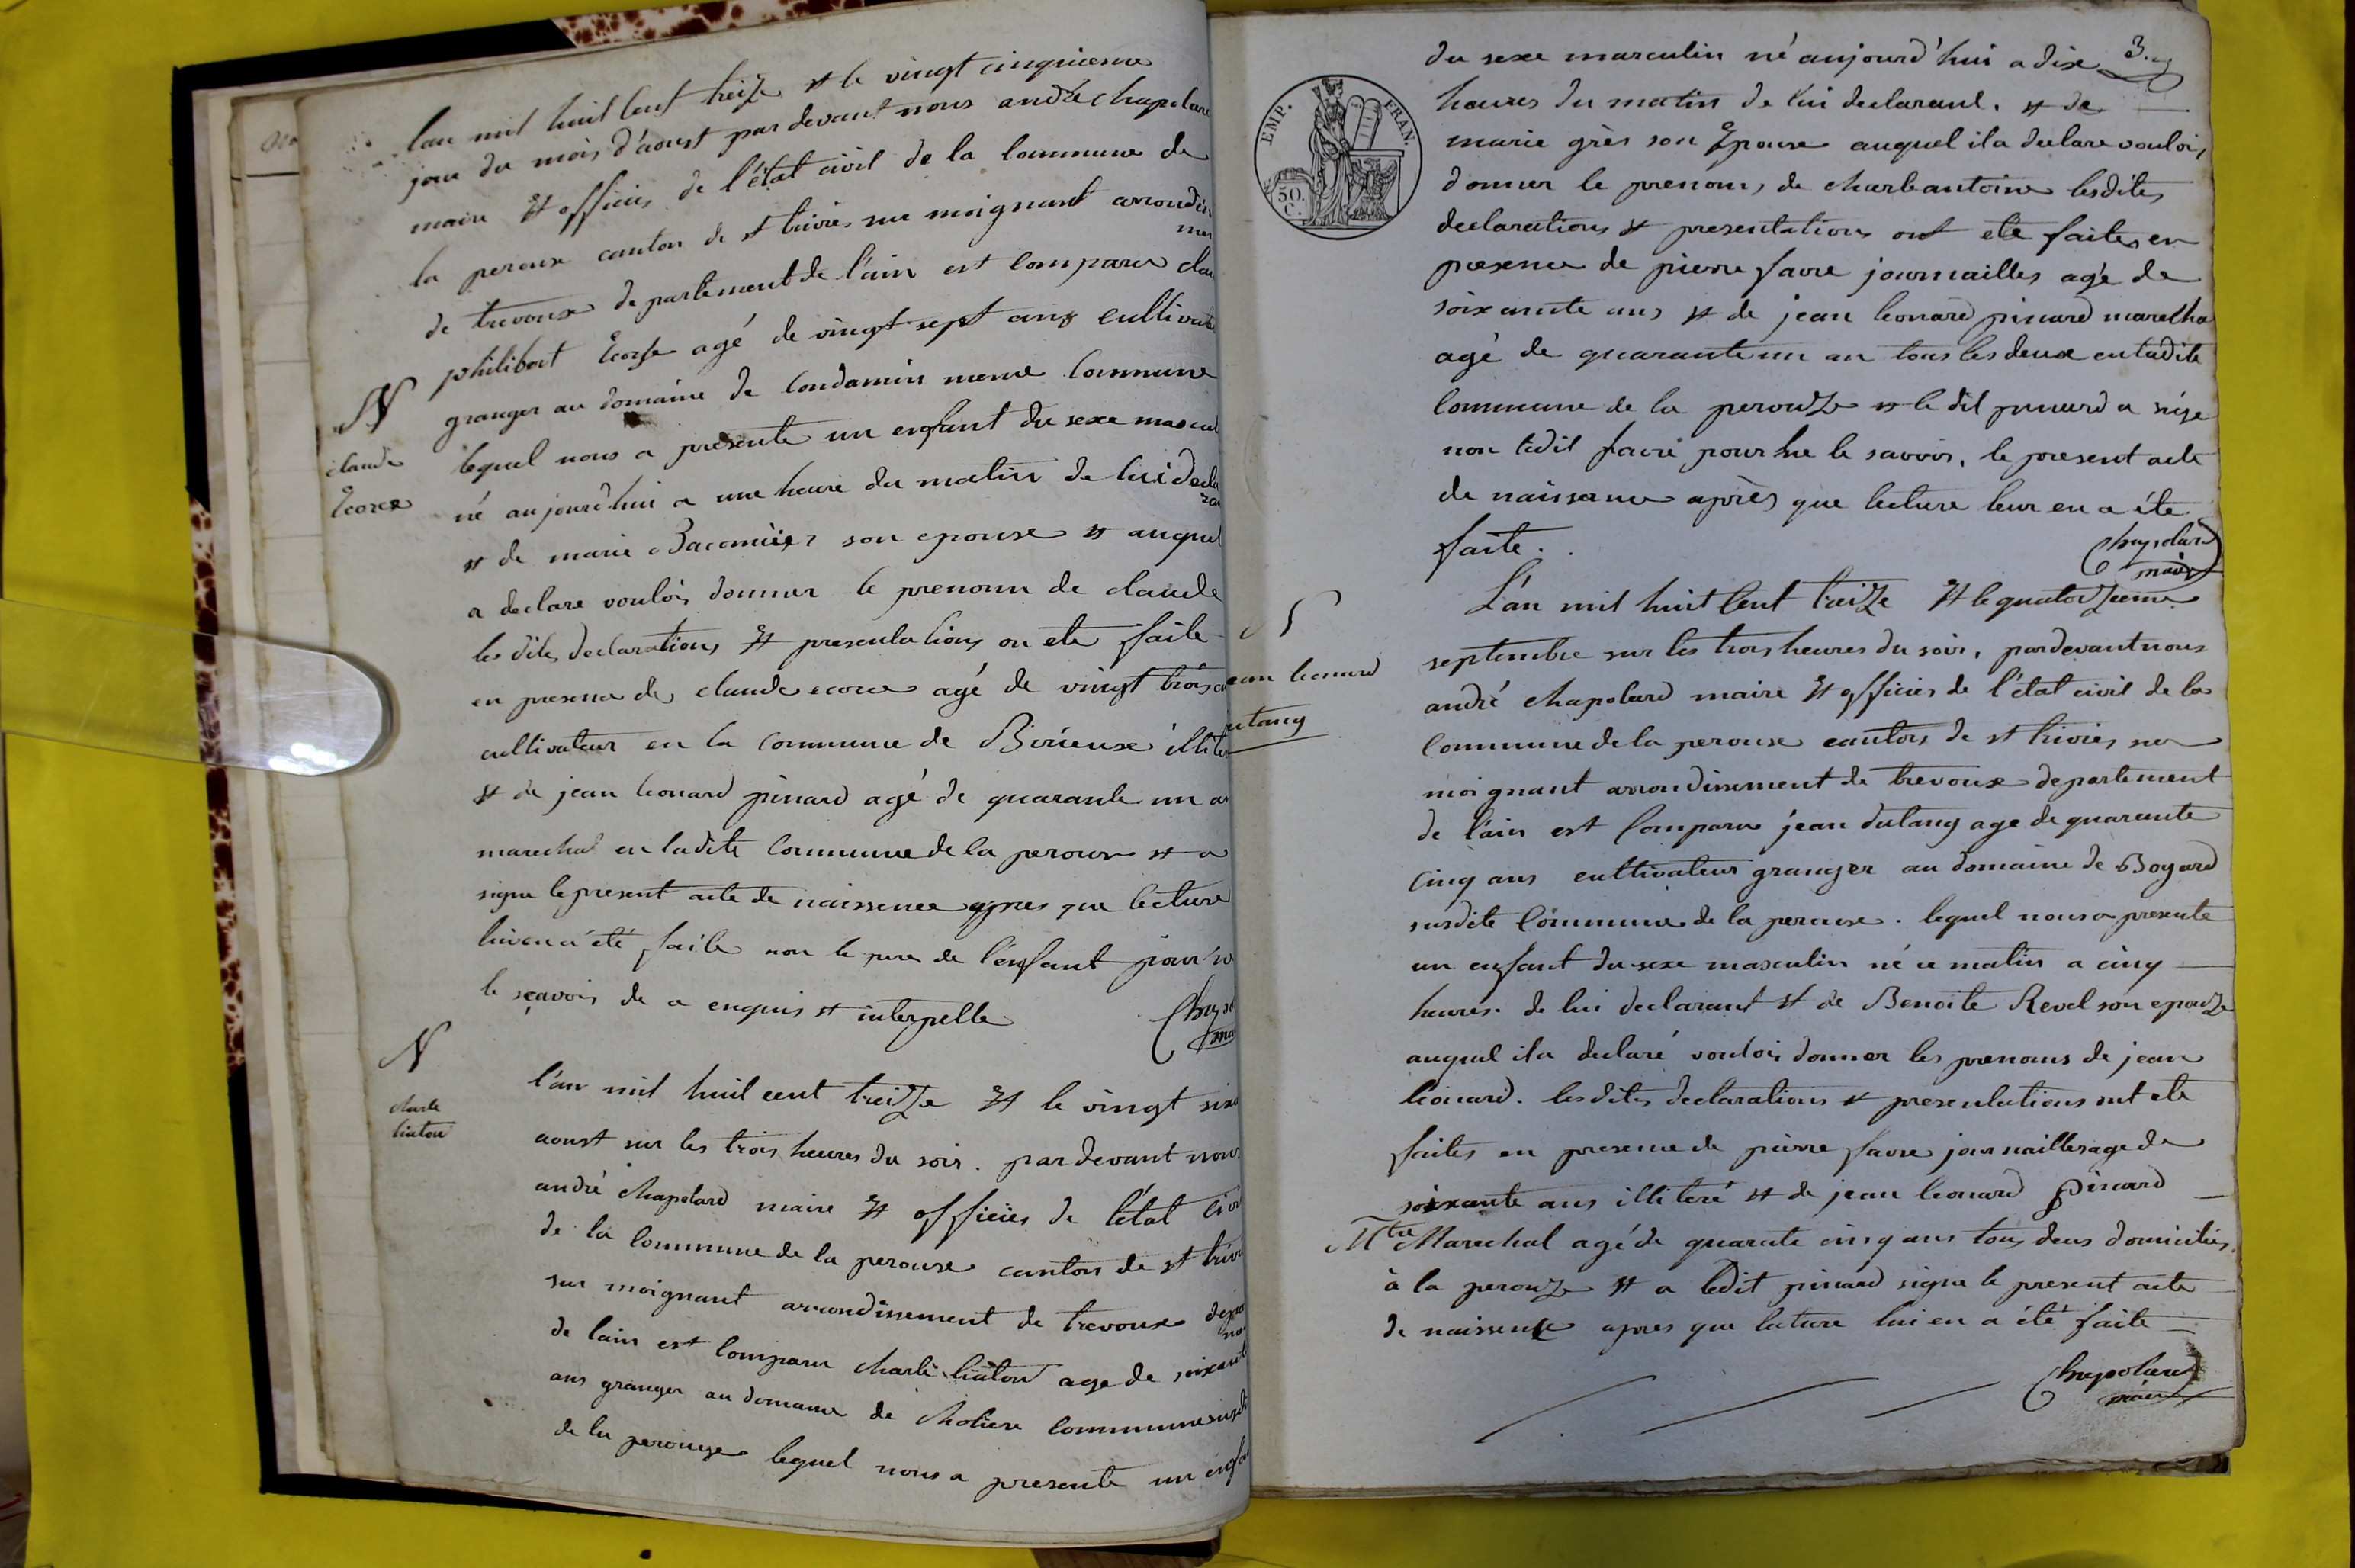 lan mil huit Cent treize et le vingt cinquieme
jour du mois d'aoust par devant nous andré chapolard
maire et officier de l'état civil de la Commune de
la perouse canton de st trivier sur moignant arrondis
mu
de trevoux departement de l'ain est Comparu clau
philibert Ecosse agé de vingt sept ans cultivat
granger au domaine de Condamin meme Commune
N
claude
Ecorce
lequel nous a presente un enfant du sexe mascul
né aujourd'hui a une heure du matin de lui decla
ran
et de marie Bacomier son epouse et auquel
a declare vouloir donner le prenom de claude
les dites declarations et presentations on ete faite
en presence de claude ecorce agé de vingt trois an
cultivateur en la Commune de Birieuse illite
et de jean leonard pinard agé de quarante un an
marechal en ladite Commune de la perouse et a
signe le present acte de naissence apres que lecture
lui en a été faite non le pere de l'enfant pour ne
le sçavoir de a enquis et interpelle
Chapo
ma
N
charle
liaton
l'an mil huit cent treize et le vingt six
aoust sur les trois heures du soir. par devant nous
andré Chapolard maire et officier de l'état civil
de la Commune de la perouse canton de st triv
sur moignant arrondissement de trevoux depar
de l'ain est Comparu charle liaton age de soixante
ans granger au domaine de Moliere Commune susdit
de la perouse lequel nous a presente un enfan
3.
du sexe masculin né aujourd'hui a dix
EMP. FRAN.
50. C.
heures du matin de lui declarant. et de
marie grès son Epouse auquel il a declare vouloir
donner le prenom, de charle antoine lesdites
declarations et presentations ont ete faites en
presence de pierre favre journailler agé de
soixante ans et de jean leonard pinard marecha
agé de quarante un an tous les deux en ladite
Commune de la perouze et le dit pinard a signe
non ledit favre pour ne le savoir, le present acte
de naissance après que lecture leur en a éte
faite.
Chapolard
maire
N
ean leonard
utang
L'an mil huit Cent treize et le quatorzieme
septembre sur les trois heures du soir, pardevant nous
andré chapolard maire et officier de l'état civil de la
Commune de la perouse canton de st trivier sur
moignant arrondissement de trevoux departement
de l'ain est Comparu jean dutang age de quarante
cinq ans cultivateur granger au domaine de Boyard
susdite Commune de la perouse. lequel nous a presente
un enfant du sexe masculin né ce matin a cinq
heures. de lui declarant et de Benoite Revel son epouze
auquel il a declaré vouloir donner les prenoms de jean
leonard. lesdites declarations et presentations ont ete
faites en presence de pierre favre journailler age de
soixante ans illiteré et de jean leonard pinard
Mtre Marechal agé de quarate cinq ans tous deus domicilies
à la perouze et a ledit pinard signe le present acte
de naissense apres que lature lui en a été faite
Chapolard
maire